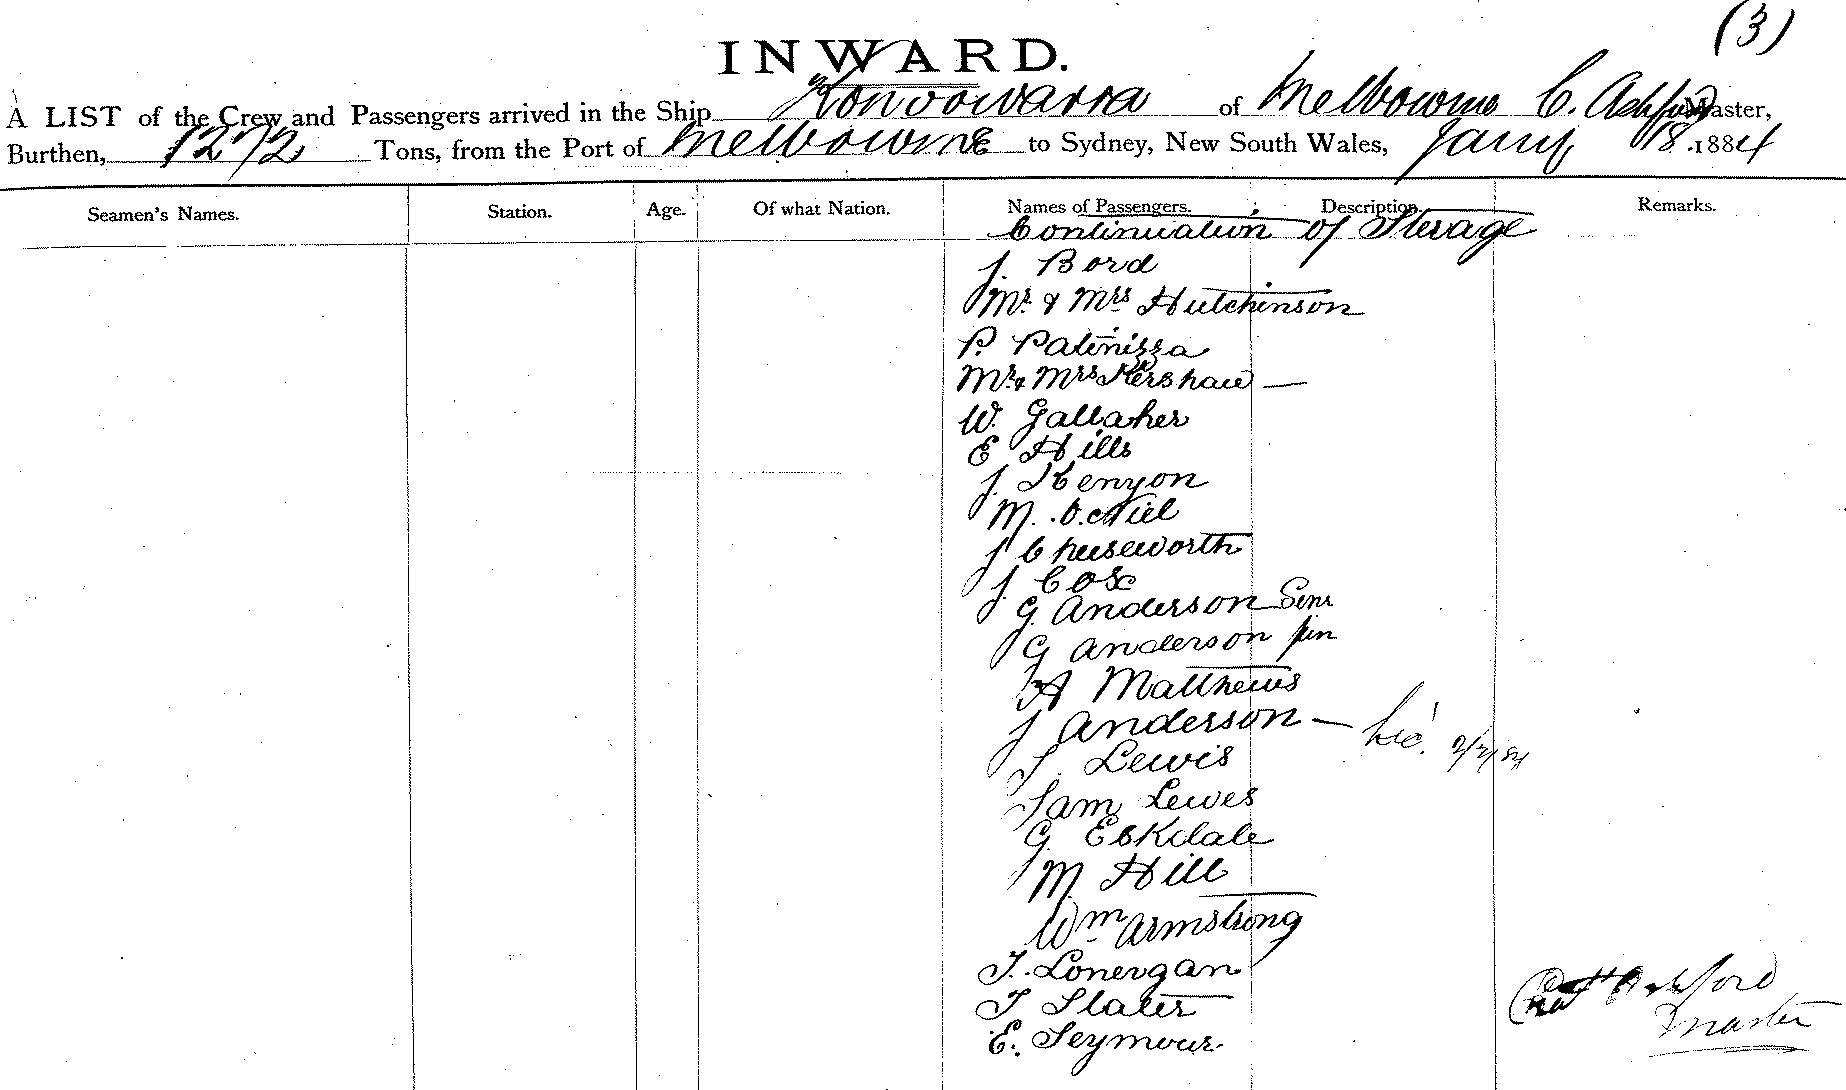 (3)
INWARD.
A LIST of the Crew and Passengers arrived in the Ship Konoowarra of Melbourne C. Ashford Master,
Burthen, 1272 Tons, from the Port of Melbourne to Sydney, New South Wales, Jany 18 1884
Seamen's Names. Station. Age. Of what Nation. Names of Passengers. Description. Remarks.
Continuation of Sterage
J. Bord
Mr. & Mrs Hutchinson
P. Patinissa
Mr & Mrs Kershaw —
W. Gallaher
E Hills
J. Kenyon
M. O.Niel
J Chuseworth
J. Cox
G. Anderson Senr
G Anderson jun
A Matthews
J Anderson —
J. Lewis
Sam Lewes
G. Eskdale
M. Hill
Wm Armstrong
T. Lonergan
T Slater
E. Seymour
Ashford
Master